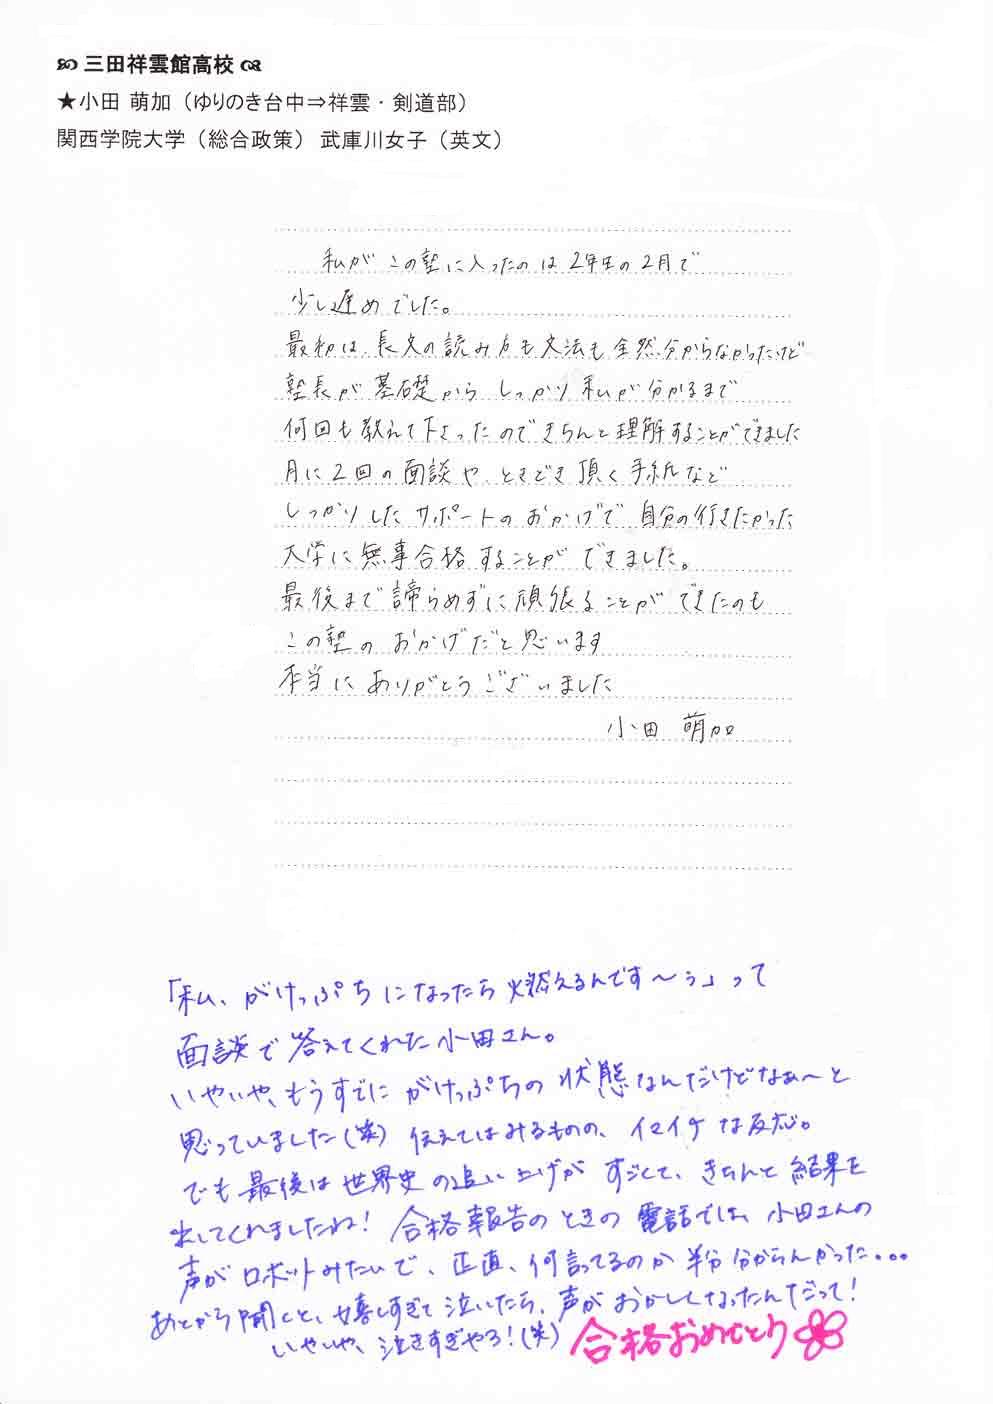 三田祥雲館高校
★小田 萌加（ゆりのき台中⇒祥雲・剣道部）
関西学院大学（総合政策） 武庫川女子（英文）
私がこの塾に入ったのは2年生の2月で
少し遅めでした。
最初は、長文の読み方も文法も全然分からなかったけど
塾長が基礎からしっかり私が分かるまで
何回も教えて下さったのできちんと理解することができました
月に2回の面談や、ときどき頂く手紙など
しっかりしたサポートのおかげで自分の行きたかった
大学に無事合格することができました。
最後まで諦らめずに頑張ることができたのも
この塾のおかげだと思います
本当にありがとうございました
小田 萌加
「私、がけっぷちになったら燃えるんです〜ぅ」って
面談で答えてくれた小田さん。
いやいや、もうすでにがけっぷちの状態なんだけどなぁ〜と
思っていました(笑) 伝えてはみるものの、イマイチな反応。
でも最後は世界史の追い上げがすごくて、きちんと結果を
出してくれましたね！合格報告のときの電話では、小田さんの
声がロボットみたいで、正直、何言ってるのか半分分からんかった...
あとから聞くと、嬉しすぎて泣いたら、声がおかしくなったんだって！
いやいや、泣きすぎやろ！(笑) 合格おめでとう